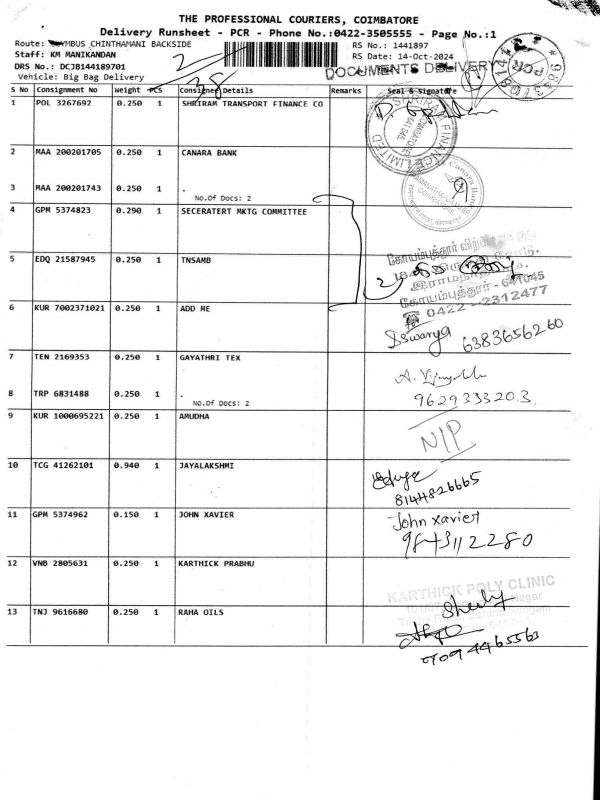 THE PROFESSIONAL COURIERS, COIMBATORE
Delivery Runsheet - PCR - Phone No.:0422-3505555 - Page No.:1
Route: CHINTHAMANI BACKSIDE 2 RS No.: 1441897
Staff: KM MANIKANDAN RS Date: 14-Oct-2024
DRS No.: DCJB144189701 DOCUMENTS DELIVERY
Vehicle: Big Bag Delivery 38
PCR
S No Consignment No Weight PCS Consignee Details Remarks Seal & Signature
1 POL 3267692 0.250 1 SHRIRAM TRANSPORT FINANCE CO
SHRIRAM FINANCE LIMITED
COIMBATORE
641045
2 MAA 200201705 0.250 1 CANARA BANK
Canara Bank
3 MAA 200201743 0.250 1 .
No.Of Docs: 2
4 GPM 5374823 0.290 1 SECERATERT MKTG COMMITTEE
கோயம்புத்தூர் விற்
5 EDQ 21587945 0.250 1 TNSAMB
கோயம்புத்தூர் - 641045
☎ 0422 - 2312477
6 KUR 7002371021 0.250 1 ADD ME
Iswarya 6383656260
7 TEN 2169353 0.250 1 GAYATHRI TEX
8 TRP 6831488 0.250 1 .
No.Of Docs: 2
9629333203
9 KUR 1000695221 0.250 1 AMUDHA
N/P
10 TCG 41262101 0.940 1 JAYALAKSHMI
8144826665
11 GPM 5374962 0.150 1 JOHN XAVIER
John Xavier
9843112280
12 VNB 2805631 0.250 1 KARTHICK PRABHU
KARTHICK POLY CLINIC
13 TNJ 9616680 0.250 1 RAHA OILS
7094465563